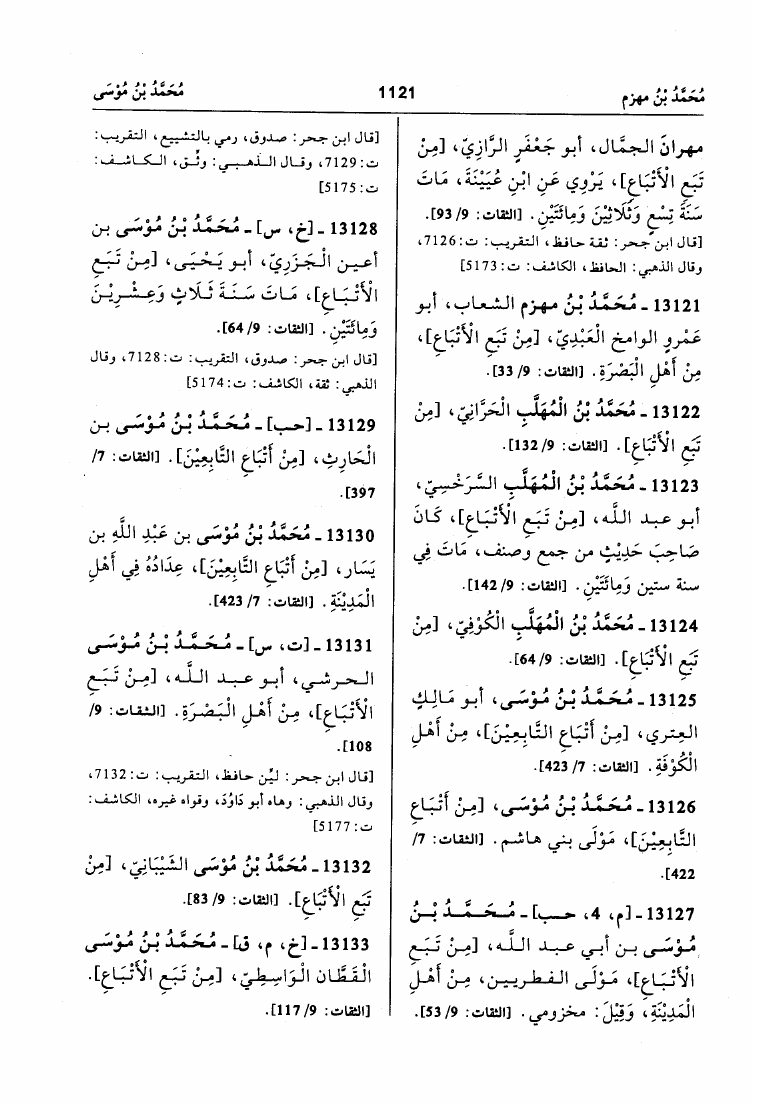 مُحَمَّدُ بْنُ مهزم
1121
مُحَمَّدُ بْنُ مُوْسَى
مهرانَ الجمَّال، أبو جَعْفَرٍ الرَّازِيّ، [مِنْ
تَبَعِ الأَتْبَاعِ]، يَرْوِي عَنِ ابْنِ عُيَيْنَةَ، مَاتَ
سَنَةَ تِسْعٍ وَثَلَاثِيْنَ وَمِائَتَيْنِ. [الثقات: 9/ 93].
[قال ابن حجر: ثقة حافظ، التقريب: ت: 7126،
وقال الذهبي: الحافظ، الكاشف: ت: 5173]
13121 ـ مُحَمَّدُ بْنُ مهزم الشعاب، أبو
عَمْرٍو الوامخ العَبْدِيّ، [مِنْ تَبَعِ الأَتْبَاعِ]،
مِنْ أَهْلِ الْبَصْرَةِ. [الثقات: 9/ 33].
13122 ـ مُحَمَّدُ بْنُ الْمُهَلَّبِ الْحَرَّانِيّ، [مِنْ
تَبَعِ الأَتْبَاعِ]. [الثقات: 9/ 132].
13123 ـ مُحَمَّدُ بْنُ الْمُهَلَّبِ السَّرَخْسِيّ،
أبو عبد اللَّه، [مِنْ تَبَعِ الأَتْبَاعِ]، كَانَ
صَاحِبَ حَدِيْثٍ من جمع وصنف، مَاتَ فِي
سنة ستين وَمِائَتَيْنِ. [الثقات: 9/ 142].
13124 ـ مُحَمَّدُ بْنُ الْمُهَلَّبِ الْكُوْفِيّ، [مِنْ
تَبَعِ الأَتْبَاعِ]. [الثقات: 9/ 64].
13125 ـ مُحَمَّدُ بْنُ مُوْسَى، أبو مَالِكٍ
العتري، [مِنْ أَتْبَاعِ التَّابِعِيْنَ]، مِنْ أَهْلِ
الْكُوْفَةِ. [الثقات: 7/ 423].
13126 ـ مُحَمَّدُ بْنُ مُوْسَى، [مِنْ أَتْبَاعِ
التَّابِعِيْنَ]، مَوْلَى بني هاشم. [الثقات: 7/
422].
13127 ـ [م، 4، حب] ـ مُحَمَّدُ بْنُ
مُوْسَى بن أبي عبد اللَّه، [مِنْ تَبَعِ
الأَتْبَاعِ]، مَوْلَى الفطريين، مِنْ أَهْلِ
الْمَدِيْنَةِ، وَقِيْلَ: مخزومي. [الثقات: 9/ 53].
[قال ابن حجر: صدوق، رمي بالتشييع، التقريب:
ت: 7129، وقال الذهبي: وثق، الكاشف:
ت: 5175]
13128 ـ [خ، س] ـ مُحَمَّدُ بْنُ مُوْسَى بن
أعين الْجَزَرِيّ، أبو يَحْيَى، [مِنْ تَبَعِ
الأَتْبَاعِ]، مَاتَ سَنَةَ ثَلَاثٍ وَعِشْرِيْنَ
وَمِائَتَيْنِ. [الثقات: 9/ 64].
[قال ابن حجر: صدوق، التقريب: ت: 7128، وقال
الذهبي: ثقة، الكاشف: ت: 5174]
13129 ـ [حب] ـ مُحَمَّدُ بْنُ مُوْسَى بن
الْحَارِثِ، [مِنْ أَتْبَاعِ التَّابِعِيْنَ]. [الثقات: 7/
397].
13130 ـ مُحَمَّدُ بْنُ مُوْسَى بن عَبْدِ اللَّهِ بن
يَسَار، [مِنْ أَتْبَاعِ التَّابِعِيْنَ]، عِدَادُهُ فِي أَهْلِ
الْمَدِيْنَةِ. [الثقات: 7/ 423].
13131 ـ [ت، س] ـ مُحَمَّدُ بْنُ مُوْسَى
الحرشي، أبو عبد اللَّه، [مِنْ تَبَعِ
الأَتْبَاعِ]، مِنْ أَهْلِ الْبَصْرَةِ. [الثقات: 9/
108].
[قال ابن حجر: ليّن حافظ، التقريب: ت: 7132،
وقال الذهبي: وهاه أبو دَاوُدَ، وقواه غيره، الكاشف:
ت: 5177]
13132 ـ مُحَمَّدُ بْنُ مُوْسَى الشَّيْبَانِيّ، [مِنْ
تَبَعِ الأَتْبَاعِ]. [الثقات: 9/ 83].
13133 ـ [خ، م، ق] ـ مُحَمَّدُ بْنُ مُوْسَى
الْقَطَّان الْوَاسِطِيّ، [مِنْ تَبَعِ الأَتْبَاعِ].
[الثقات: 9/ 117].